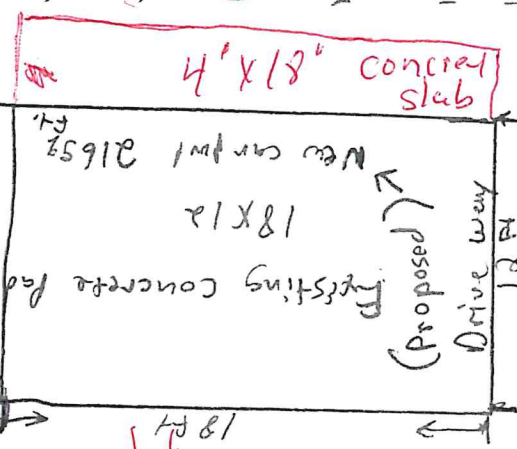 4' X 18' concret
slab
18 ft
Existing Concrete Pad
18 X 12
New carport 216 sq
ft.
(Proposed)
Drive way